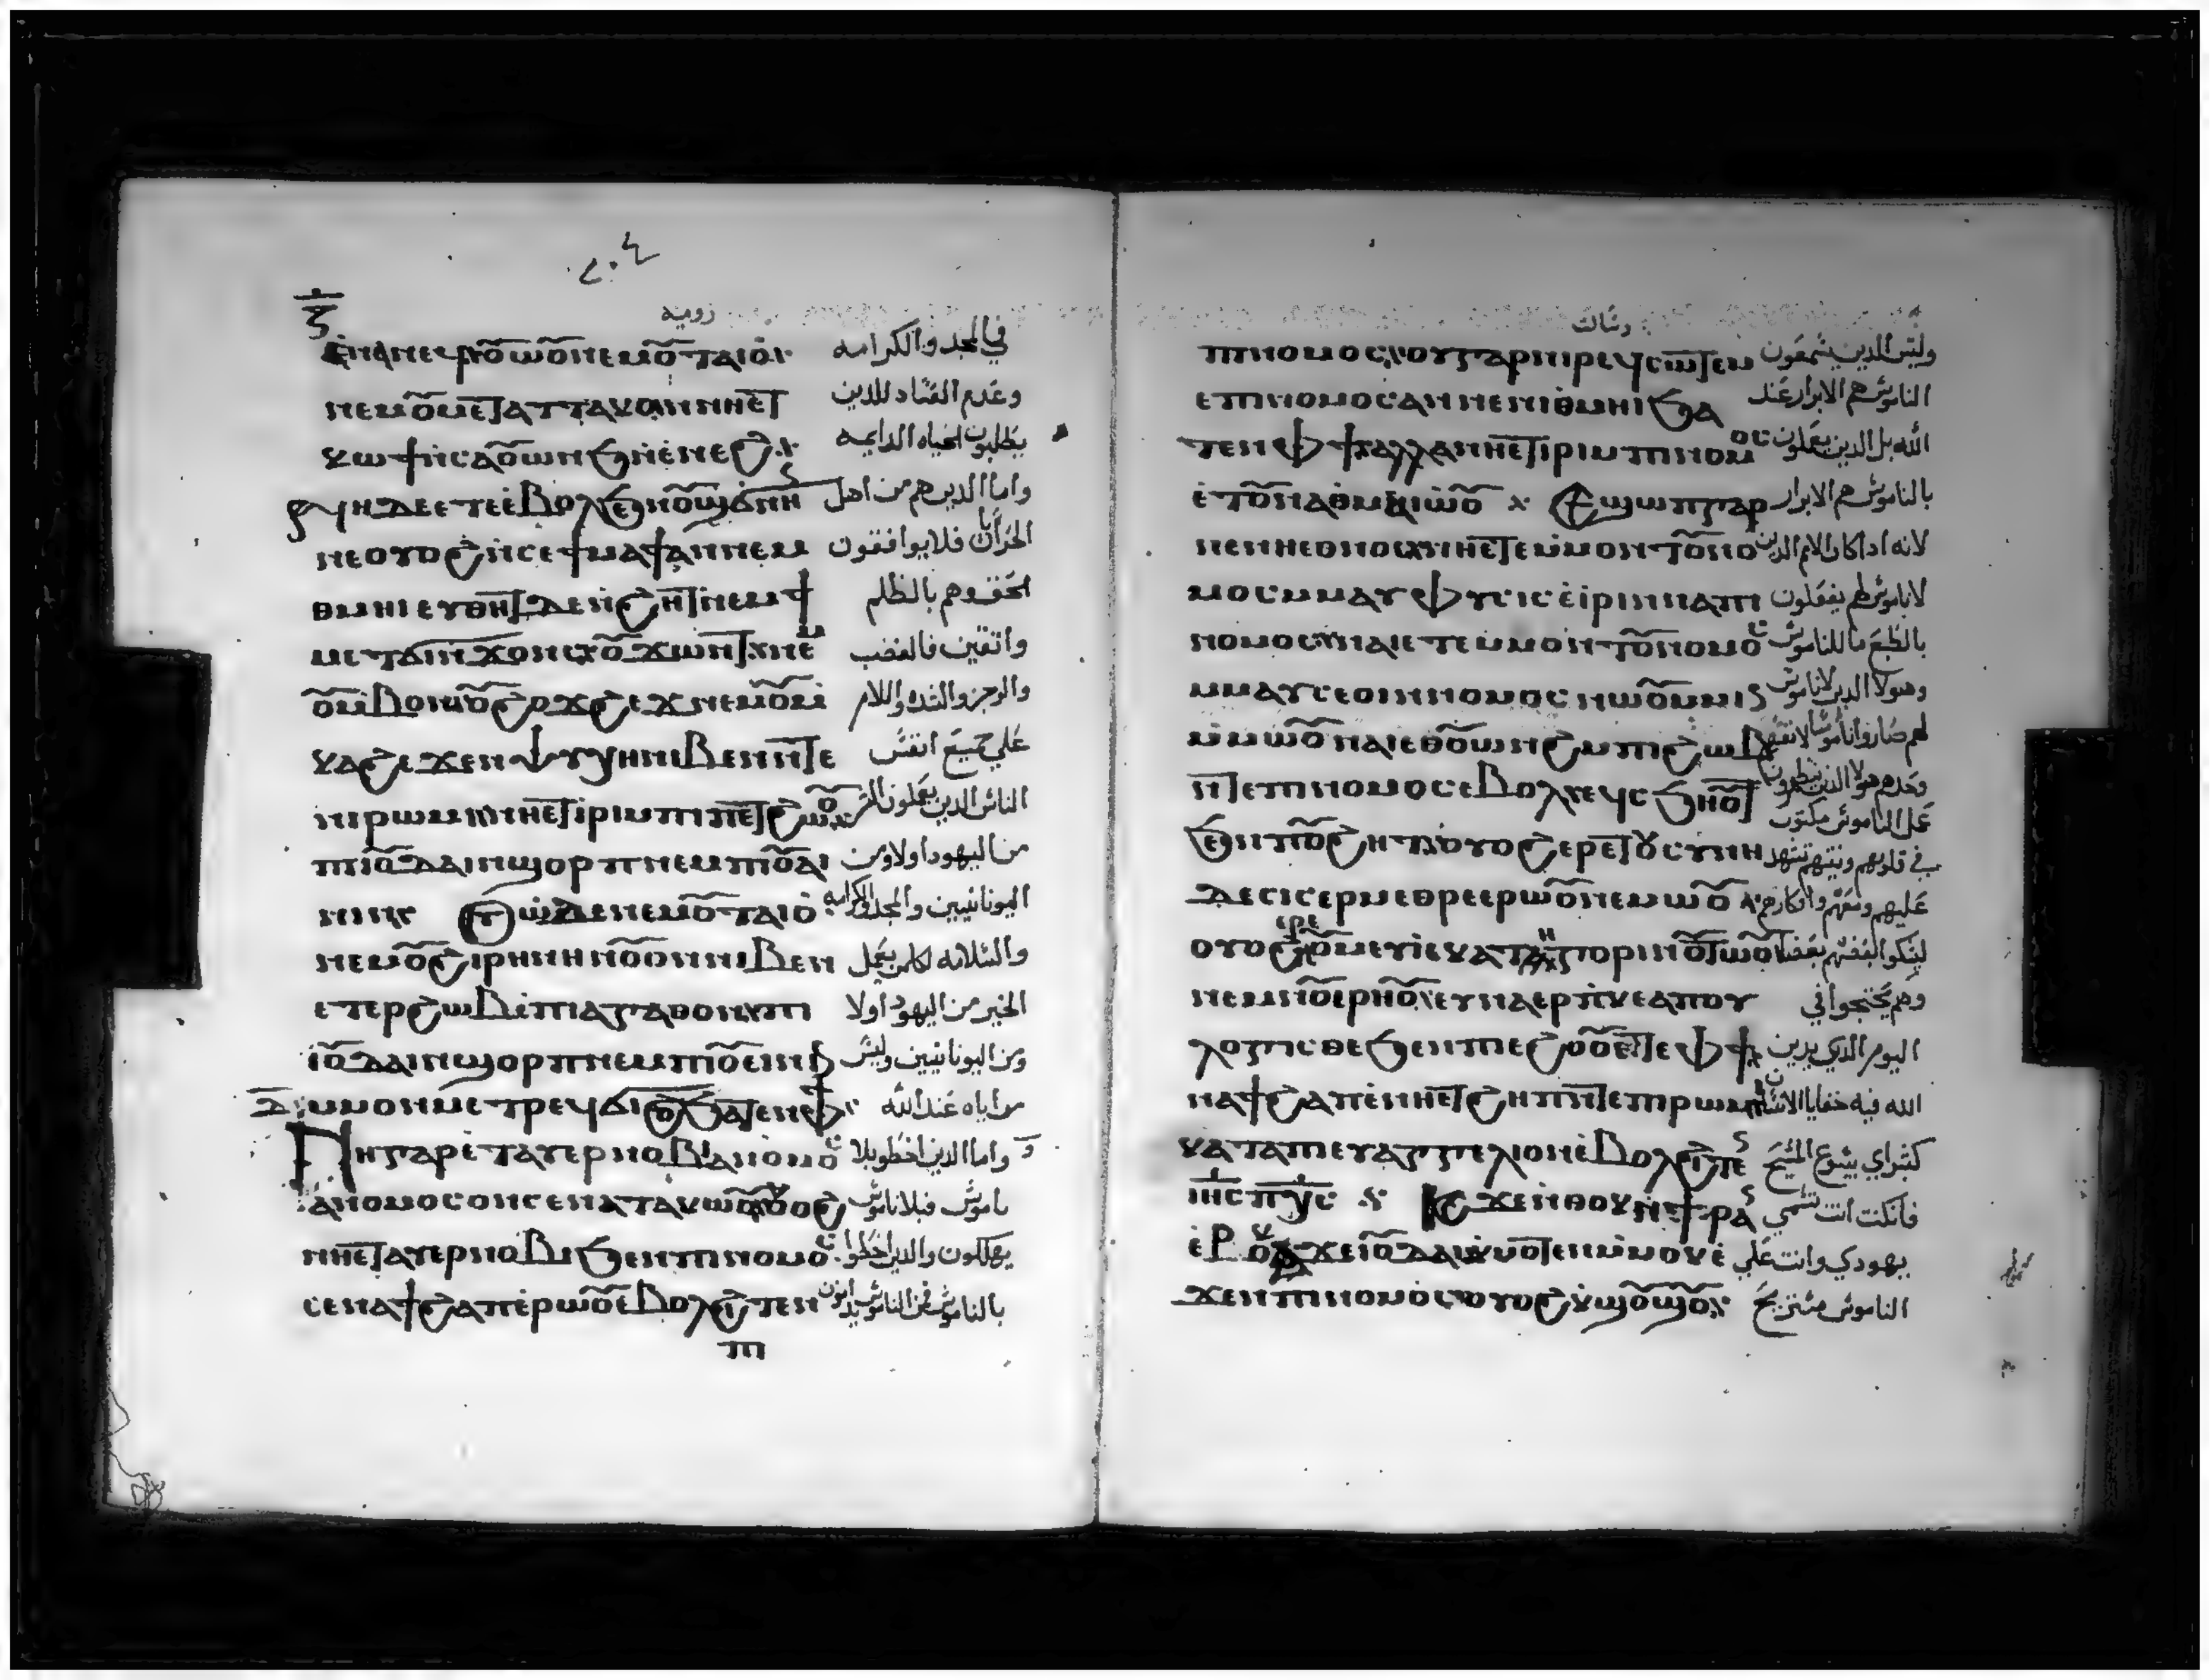 ⲍ̅
٢٠٤
رومية
ⲉⲛⲁⲛⲉϥ ⲟ̅ⲱⲟ̅ ⲛⲉⲙⲟ̅ⲧⲁⲓⲟ في المجد والكرامه
ⲛⲉⲙⲟ̅ⲙⲉⲧ̅ⲁⲧⲧⲁⲕⲟ ⲛⲛⲏⲉⲧ̅ وعدم الفساد للدين
ⲕⲱϯ ⲛⲥⲁⲟ̅ⲱⲛϧ ⲛⲉⲛⲉϩ يطلبون الحياه الدايمه
ⲛⲏ ⲇⲉ ⲉⲧⲉ ⲉⲃⲟⲗϧⲉⲛⲟ̅ϣϭⲛⲏ واما الدين هم من اهل
ⲛⲉ ⲟⲩⲟϩ ⲛⲥⲉϯⲙⲁϯ ⲁⲛ ⲛⲉⲙ فلا يوافقون
ⲑⲙⲏⲓ ⲉⲩⲑⲏⲧ̅ ⲇⲉ ⲛϩⲏⲧ̅ ⲛⲉⲙϯ بالظلم
ⲙⲉⲧϭⲓⲛϫⲟⲛⲥ ⲟ̅ϫⲱⲛⲧ̅ ⲛⲉⲙ واثقين فالغضب
ⲟ̅ⲙⲃⲟⲛ ⲟ̅ϩⲟϫϩⲉϫ ⲛⲉⲙⲟ̅ⲙ والرجز والشده والالام
ⲕⲁϩ ⲉϫⲉⲛ ⲯⲩⲭⲏ ⲛⲓⲃⲉⲛ ⲛⲧ̅ⲉ علي جميع انفس
ⲛⲓⲣⲱⲙⲓ ⲛⲏⲉⲧ̅ⲓⲣⲓ ⲙⲡⲓⲡⲉⲧ̅ϩⲱⲟ̅ الناس الدين يعملون الشر
ⲡⲓⲓⲟ̅ⲇⲁⲓ ⲛϣⲟⲣⲡ ⲛⲉⲙ ⲡⲓⲟ̅ⲉⲓ من اليهود اولا ومن
ⲛⲓⲛ ⲡⲱⲟ̅ ⲇⲉ ⲛⲉⲙⲟ̅ⲧⲁⲓⲟ اليونانيين والمجد والكرامه
ⲛⲉⲙⲟ̅ϩⲓⲣⲏⲛⲏ ⲛⲟ̅ⲟⲛ ⲛⲓⲃⲉⲛ والسلامه لكل من يعمل
ⲉⲧⲉⲣϩⲱⲃ ⲉⲡⲓⲁⲅⲁⲑⲟⲛ ⲡⲓ الخير من اليهود اولا
ⲓⲟ̅ⲇⲁⲓ ⲛϣⲟⲣⲡ ⲛⲉⲙ ⲡⲓⲟ̅ⲉⲓⲛⲓⲛ ومن اليونانيين وليس
ⲙⲙⲟⲛ ⲙⲉⲧⲣⲉϥϭⲓϩⲟ ϧⲁⲧ̅ⲉⲛ ⲫϯ عند الله
ⲛⲏ ⲅⲁⲣ ⲉⲧⲁⲩⲉⲣⲛⲟⲃⲓ ⲁⲛⲟⲙⲟⲥ واما الدين اخطو بلا
ⲁⲛⲟⲙⲟⲥ ⲟⲛ ⲥⲉⲛⲁⲧⲁⲕⲱⲟ̅ ⲟⲩⲟϩ ناموس فبلا ناموس
ⲛⲏⲉⲧ̅ⲁⲩⲉⲣⲛⲟⲃⲓ ϧⲉⲛ ⲡⲓⲛⲟⲙⲟⲥ يهلكون والدين اخطوا
ⲥⲉⲛⲁϯϩⲁⲡ ⲉⲣⲱⲟ̅ ⲉⲃⲟⲗϩⲓⲧⲉⲛ بالناموس فمن الناموس يدانون
ⲡⲓ
رسالة
ⲡⲓⲛⲟⲙⲟⲥ ⲟⲩ ⲅⲁⲣ ⲛⲓⲣⲉϥⲥⲱⲧ̅ⲉⲙ وليس الدين يسمعون
ⲉⲡⲓⲛⲟⲙⲟⲥ ⲁⲛ ⲛⲉ ⲛⲓⲑⲙⲏⲓ ϧⲁ الناموس هم الابرار عند
ⲧⲉⲛ ⲫϯ ⲁⲗⲗⲁ ⲛⲏⲉⲧ̅ⲓⲣⲓ ⲙⲡⲓⲛⲟⲙⲟⲥ الله بل الدين يعملون
ⲉⲧⲟ̅ⲛⲁⲑⲙⲁⲓⲱⲟ̅ ⲉϣⲱⲡ ⲅⲁⲣ بالناموس هم الابرار
ⲛⲉⲛⲉⲑⲛⲟⲥ ⲛⲏⲉⲧ̅ⲉ ⲙⲙⲟⲛⲧⲟ̅ⲛⲟ لانه اداكان الامم الدين
ⲙⲟⲥ ⲙⲙⲁⲩ ⲫⲩⲥⲓⲥ ⲉⲓⲣⲓ ⲛⲛⲁⲡⲓ لا ناموس لهم يفعلون
ⲛⲟⲙⲟⲥ ⲛⲁⲓ ⲉⲧⲉ ⲙⲙⲟⲛⲧⲟ̅ⲛⲟⲙⲟⲥ بالطبع ما للناموس
ⲙⲙⲁⲩ ⲥⲉⲟⲓ ⲛⲛⲟⲙⲟⲥ ⲛⲱⲟ̅ ⲙⲙⲓⲛ وهولا الدين لا ناموس
ⲙⲙⲱⲟ̅ ⲛⲁⲓ ⲉⲑⲟ̅ⲱⲛϩ ⲙⲡϩⲱⲃ لهم صاروا ناموسا لانفسهم
ⲛⲧ̅ⲉ ⲡⲓⲛⲟⲙⲟⲥ ⲉⲃⲟⲗ ⲉϥⲥϧⲏⲟ̅ⲧ وحدهم هولا الدين يظهرون
عمل الناموس مكتوب
ϧⲉⲛ ⲡⲟ̅ϩⲏⲧ ⲟⲩⲟϩ ⲉⲣⲉⲧ̅ⲟ̅ⲥⲩⲛⲏ في قلوبهم ونيتهم تشهد
ⲇⲉⲥⲓⲥ ⲉⲣⲙⲉⲑⲣⲉ ⲉⲣⲱⲟ̅ ⲛⲉⲙⲱⲟ̅ عليهم ومعهم وافكارهم
ⲟⲩⲟϩ ⲉⲣⲉ ⲛⲟ̅ⲙⲉⲩⲓ ⲉⲕⲁⲧⲏⲅⲟⲣⲓⲛ ⲟ̅ⲧⲱⲟ̅ بعضهم بعضا
ⲛⲉⲙ ⲛⲟ̅ⲉⲣⲏⲟ̅ ⲉⲩⲛⲁⲉⲣⲡⲕⲉⲁⲡⲟⲩ وهم يحتجوا في
ⲗⲟⲅⲓⲥⲑⲉ ϧⲉⲛ ⲡⲓⲉϩⲟⲟ̅ ⲉⲧ̅ⲉ ⲫϯ اليوم الدي يدين
ⲛⲁϯϩⲁⲡ ⲉⲛⲏⲉⲧ̅ϩⲏⲡ ⲛⲧ̅ⲉ ⲡⲓⲣⲱⲙⲓ الله فيه خفايا الانسان
ⲕⲁⲧⲁ ⲡⲁⲉⲩⲁⲅⲅⲉⲗⲓⲟⲛ ⲉⲃⲟⲗϩⲓⲧⲉⲛ كبشراي بيسوع المسيح
ⲓⲏⲥ ⲡⲭⲥ ⲓⲥϫⲉ ⲛⲑⲟⲕ ⲥⲉϯⲣⲁⲛ فانكنت انت تسمي
ⲉⲣⲟⲕ ϫⲉ ⲓⲟ̅ⲇⲁⲓ ⲕⲙⲟⲧ̅ⲉⲛ ⲙⲙⲟⲕ ⲉ يهودي وانت علي
ϫⲉⲛ ⲡⲓⲛⲟⲙⲟⲥ ⲟⲩⲟϩ ⲕϣⲟ̅ϣⲟ̅ الناموس مستريح